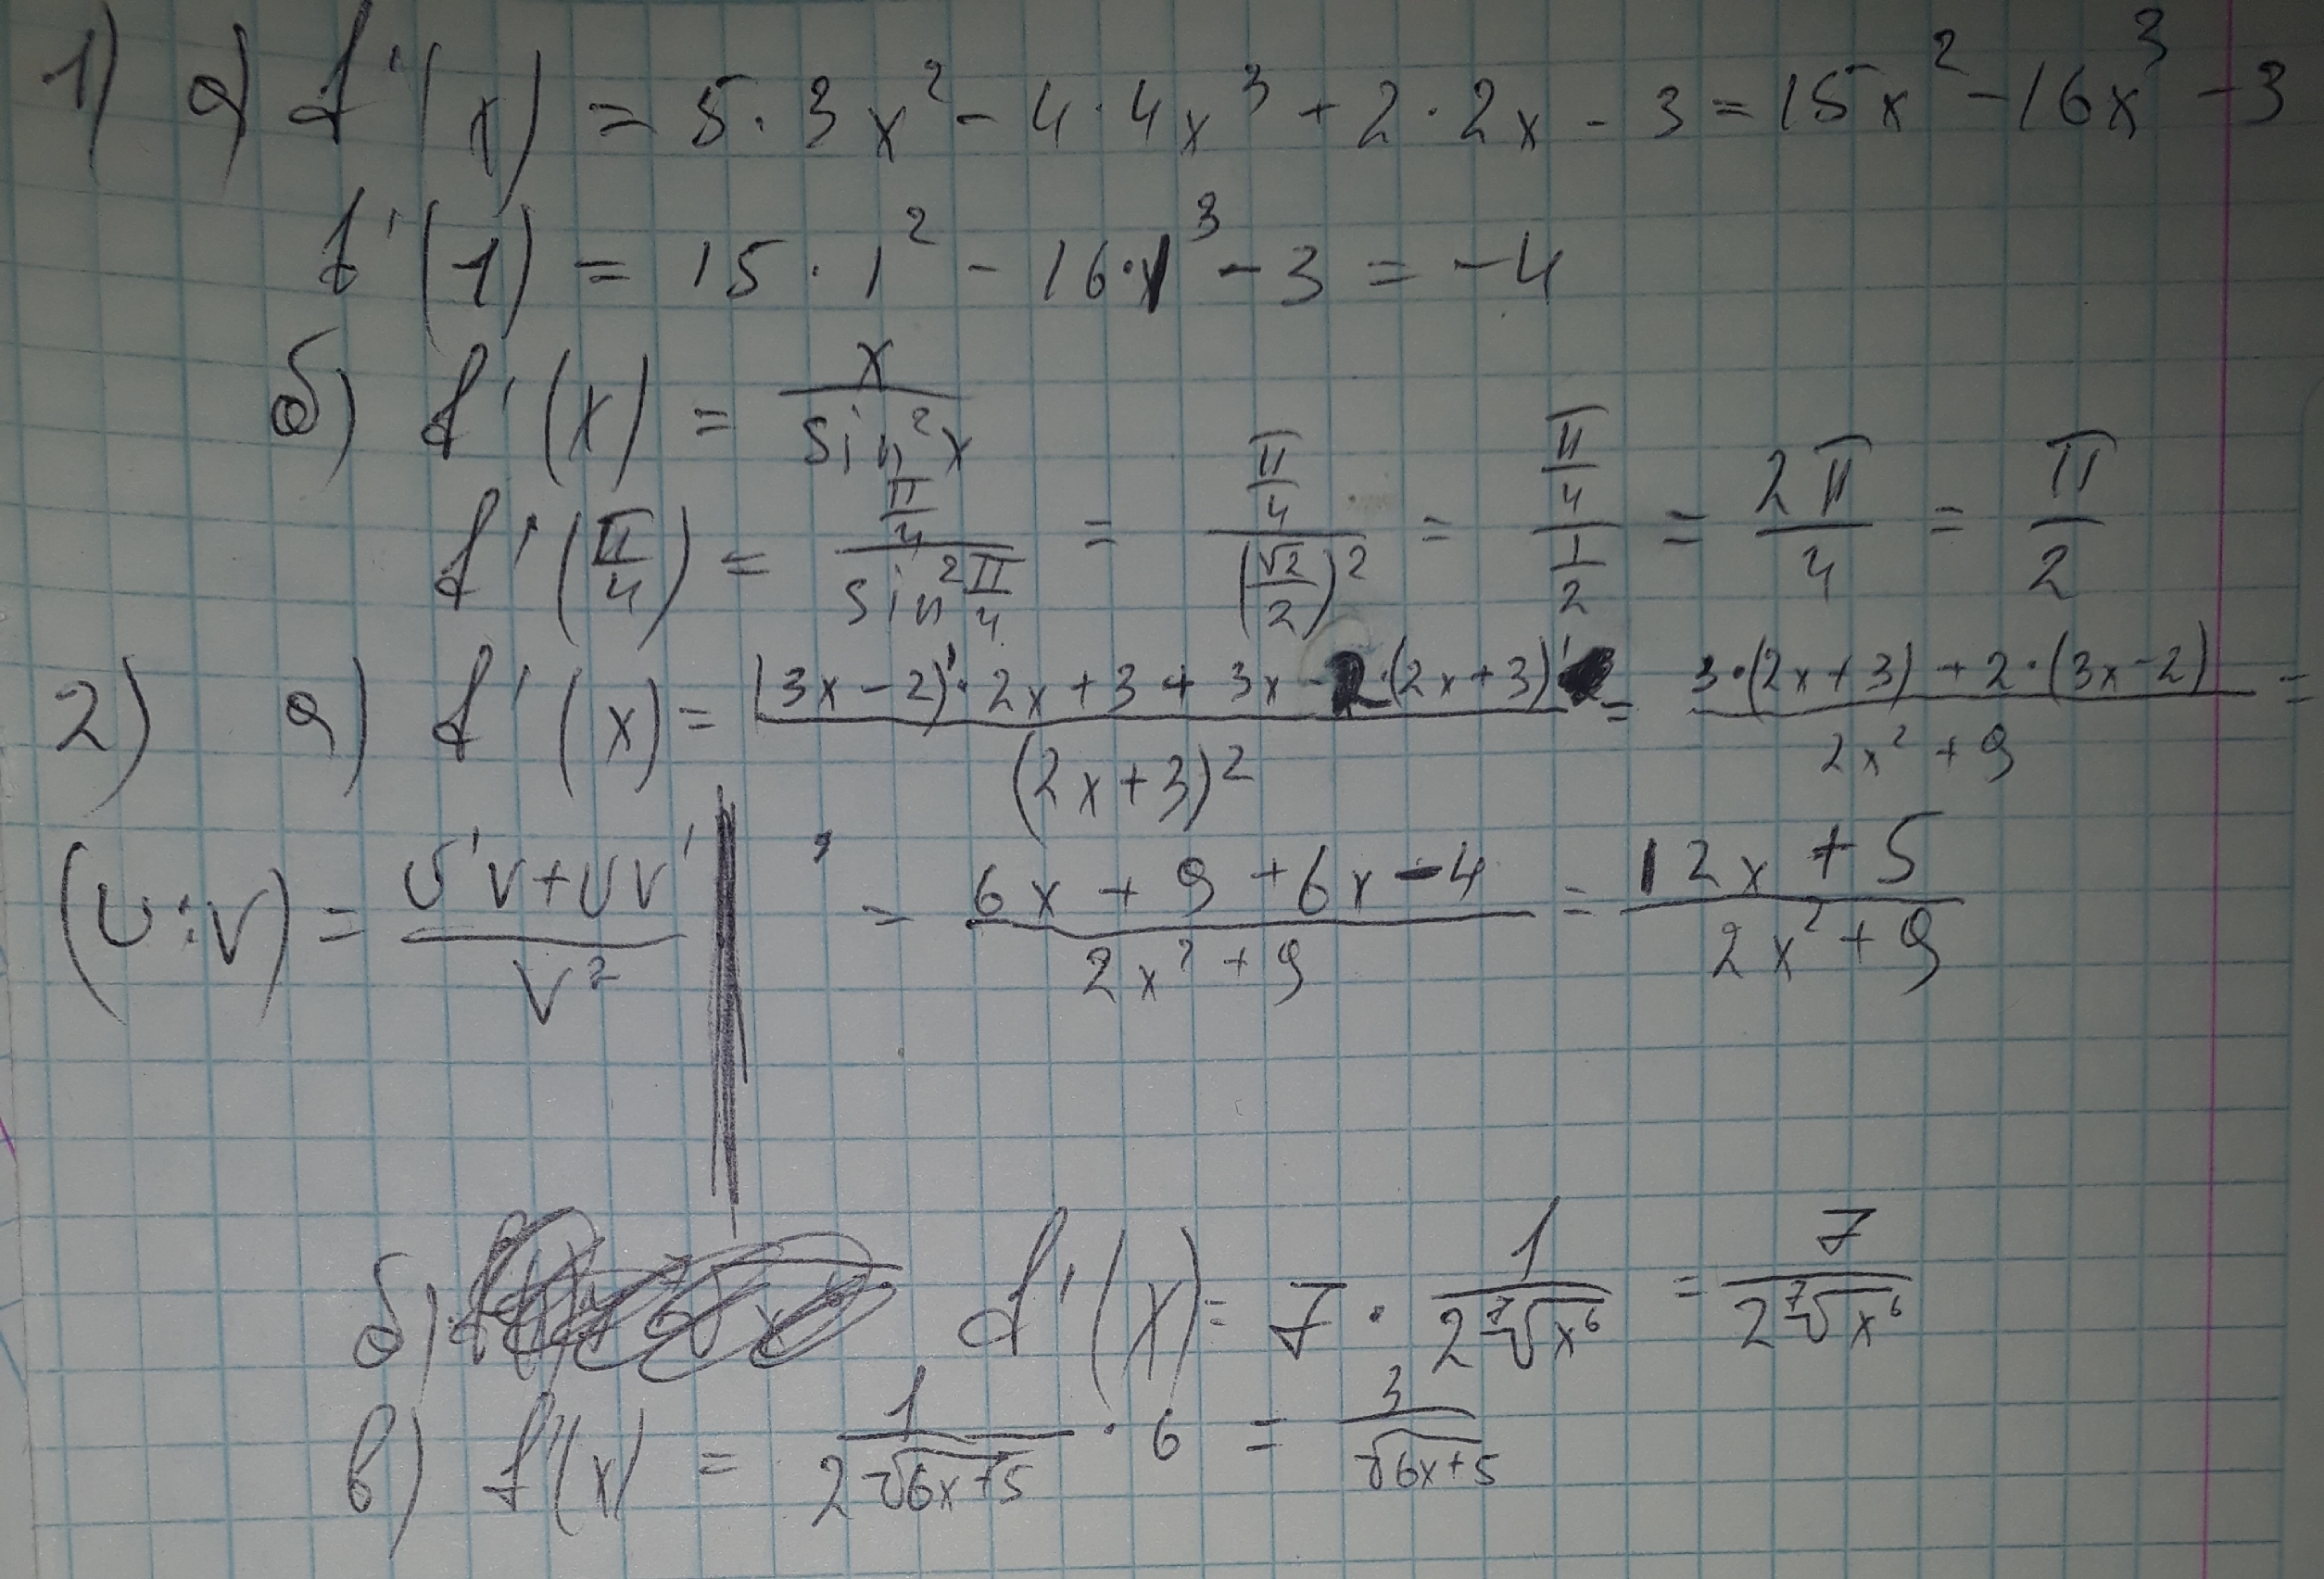 1) а) f'(x) = 5·3x² - 4·4x³ + 2·2x - 3 = 15x² - 16x³ - 3
f'(1) = 15·1² - 16·1³ - 3 = -4
б) f'(x) = x/sin²x
f'(π/4) = (π/4)/(sin² π/4) = (π/4)/(√2/2)² = (π/4)/(1/2) = 2π/4 = π/2
2) а) f'(x) = ((3x-2)'·2x+3+3x-2·(2x+3)')/(2x+3)² = (3·(2x+3)+2·(3x-2))/(2x²+9) =
(U:V)' = (U'V+UV')/V² = (6x+9+6x-4)/(2x²+9) = (12x+5)/(2x²+9)
б) f'(x) = 7·1/(2⁷√x⁶) = 7/(2⁷√x⁶)
в) f'(x) = 1/(2√6x+5)·6 = 3/√6x+5